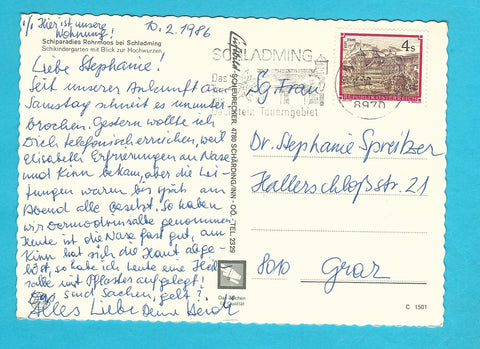 Hier ist unsere
Wohnung!
10.2.1986
Schiparadies Rohrmoos bei Schladming
Schikindergarten mit Blick zur Hochwurzen
Liebe Stephanie!
Seit unserer Ankunft am
Samstag schneit es ununter-
brochen. Gestern wollte ich
Dich telefonisch erreichen, weil
Elisabeth Erfrierungen an Nase
und Kinn bekam, aber die Lei-
tungen waren bis spät am
Abend alle besetzt. So haben
wir genommen.
Heute ist die Nase fast gut, am
Kinn hat sich die Haut abge-
löst, so habe ich heute eine Heil-
salbe mit Pflaster aufgelegt!
sind Sachen, gelt?
Alles Liebe Deine
SCHEURECKER, 4780 SCHÄRDING/INN - OÖ. - TEL. 2329
Das Zeichen
für Qualität
SCHLADMING
Das
Tauerngebiet
8970
4 S
REPUBLIK ÖSTERREICH
Sg Frau
Dr. Stephanie Spreitzer
Hallerschloßstr. 21
8010 Graz
C 1501